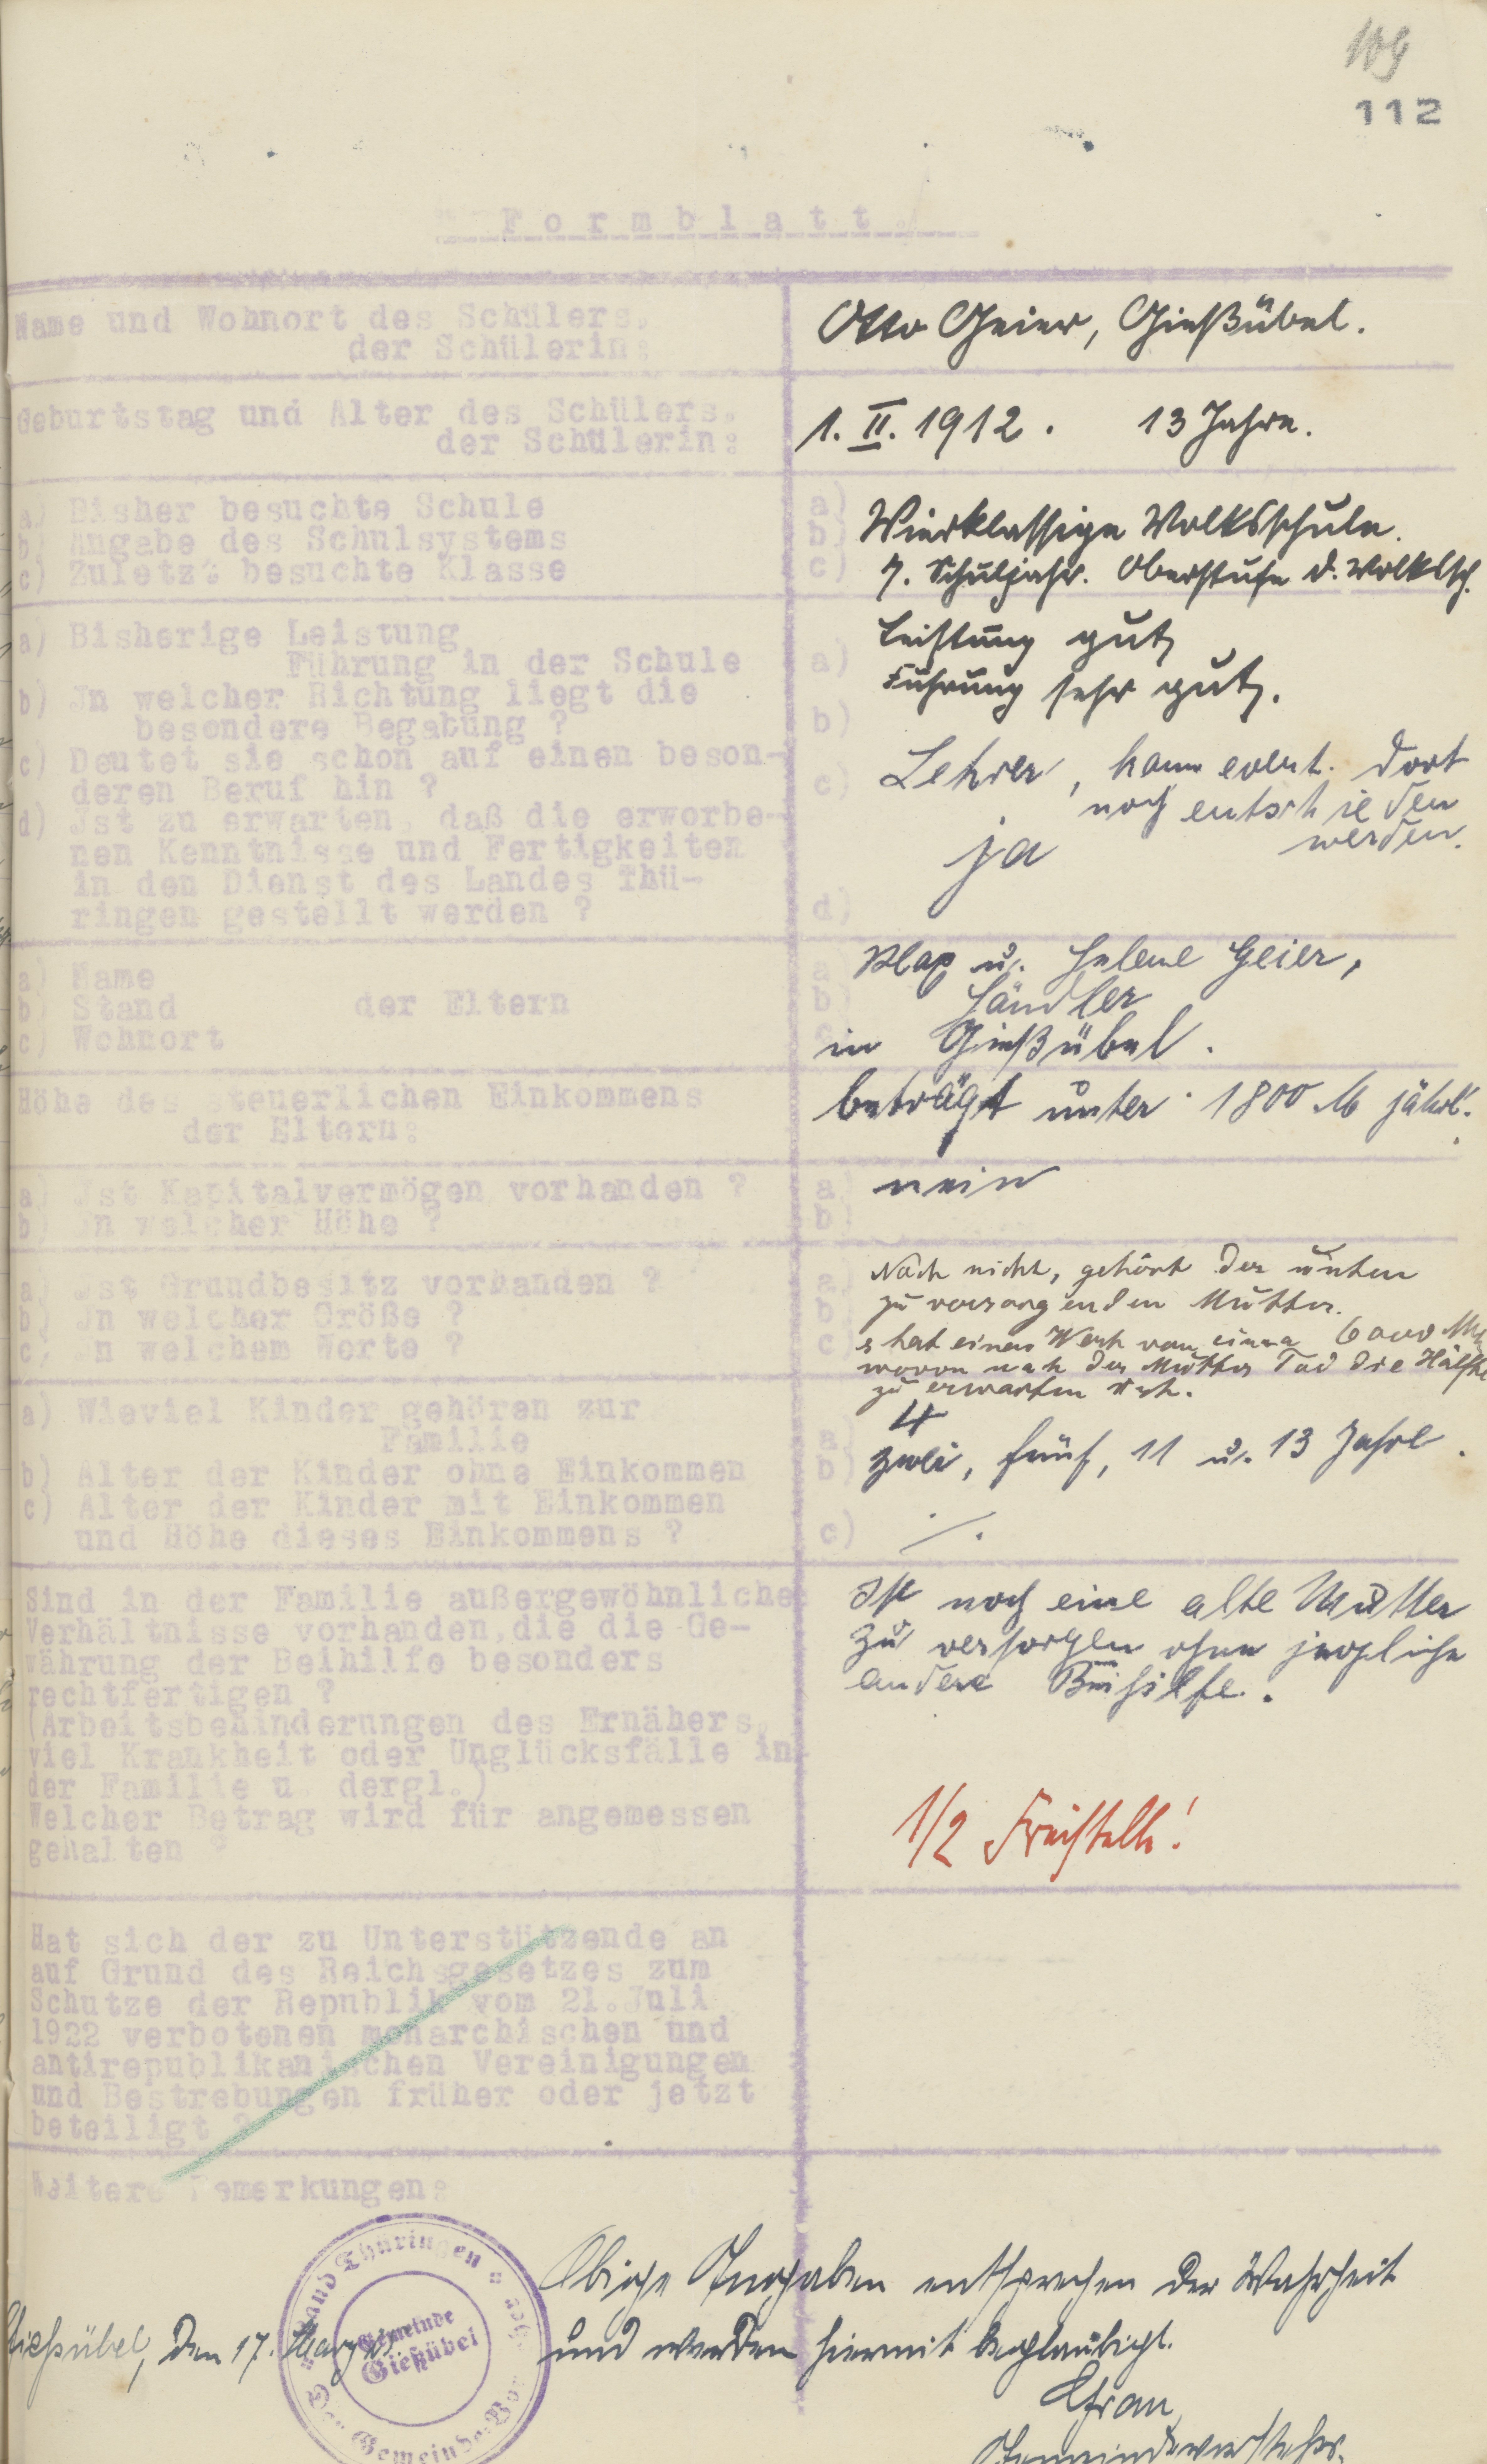 109
112
Formblatt.
Name und Wohnort des Schülers,
der Schülerin:
Otto Geier, Gießübel.
Geburtstag und Alter des Schülers,
der Schülerin:
1. II. 1912. 13 Jahre.
a) Bisher besuchte Schule
b) Angabe des Schulsystems
c) Zuletzt besuchte Klasse
a)
b) Vierklassige Volksschule.
c) 7. Schuljahr. Oberstufe d. Volkssch.
a) Bisherige Leistung
Führung in der Schule
b) Jn welcher Richtung liegt die
besondere Begabung ?
c) Deutet sie schon auf einen beson-
deren Beruf hin ?
d) Jst zu erwarten, daß die erworbe-
nen Kenntnisse und Fertigkeiten
in den Dienst des Landes Thü-
ringen gestellt werden ?
Leistung gut,
a) Führung sehr gut.
b)
c) Lehrer, kann event. dort
noch entschieden
werden.
ja
d)
a) Name
b) Stand der Eltern
c) Wohnort
a) Max u. Helene Geier,
b) Händler
c) in Gießübel.
Höhe des steuerlichen Einkommens
der Eltern:
beträgt unter 1800 M jährl.
a) Jst Kapitalvermögen vorhanden ?
b) Jn welcher Höhe ?
a) nein
b)
a) Jst Grundbesitz vorhanden ?
b) Jn welcher Größe ?
c) Jn welchem Werte ?
a) Noch nicht, gehört der unten
b) zu versorgenden Mutter.
c) s hat einen Wert von cirka 6000 Mk
wovon nach der Mutter Tod die Hälfte
zu erwarten ist.
a) Wieviel Kinder gehören zur
Familie
b) Alter der Kinder ohne Einkommen
c) Alter der Kinder mit Einkommen
und Höhe dieses Einkommens ?
a) 4
b) zwei, fünf, 11 u. 13 Jahre.
c) ./.
Sind in der Familie außergewöhnliche
Verhältnisse vorhanden,die die Ge-
währung der Beihilfe besonders
rechtfertigen ?
(Arbeitsbehinderungen des Ernähers,
viel Krankheit oder Unglücksfälle in
der Familie u. dergl.)
Welcher Betrag wird für angemessen
gehalten ?
Ist noch eine alte Mutter
zu versorgen ohne jegliche
andere Beihilfe.
1/2 Freistelle!
Hat sich der zu Unterstützende an
auf Grund des Reichsgesetzes zum
Schutze der Repnblik vom 21.Juli
1922 verbotenen monarchischen und
antirepublikanischen Vereinigungen
und Bestrebungen früher oder jetzt
beteiligt ?
Weitere Bemerkungen:
Obige Angaben entsprechen der Wahrheit
und werden hiermit beglaubigt.
Gießübel, den 17. März
Land Thüringen
Gemeinde
Gießübel
Der Gemeinde-Vor
Gemeindevorsteher.